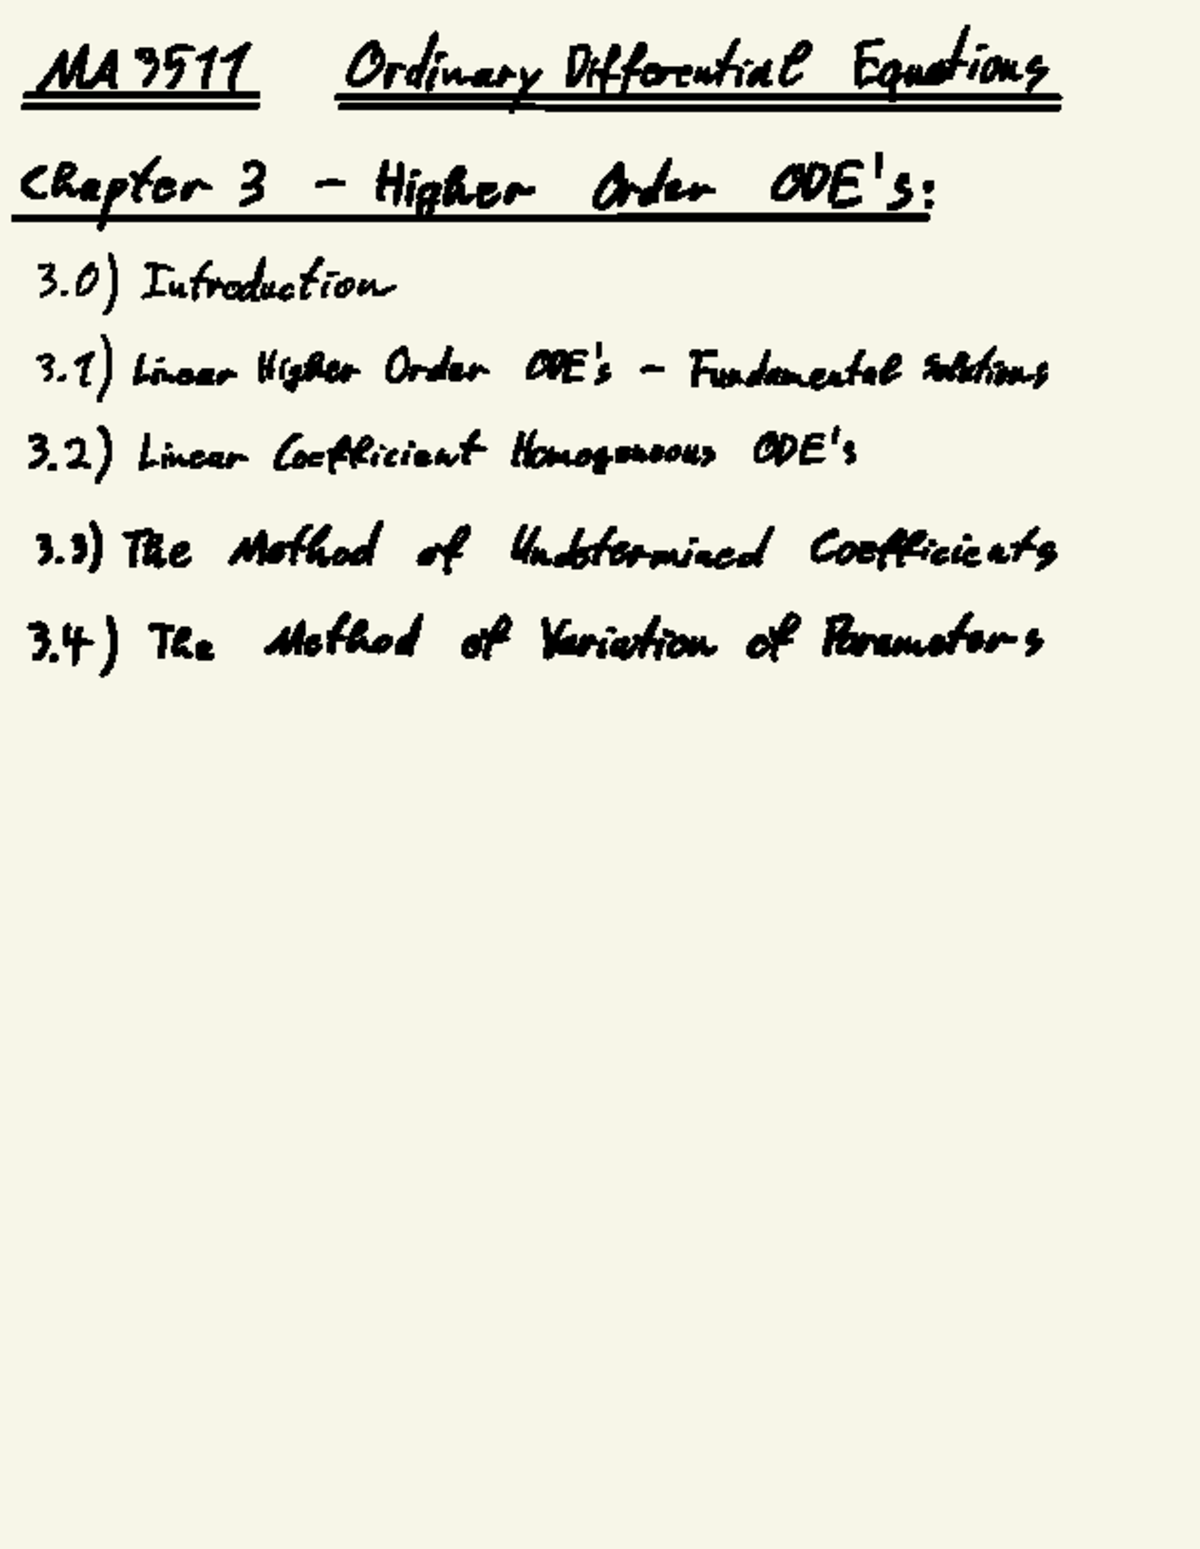 MA 3511 Ordinary Differential Equations
Chapter 3 - Higher Order ODE's:
3.0) Introduction
3.1) Linear Higher Order ODE's - Fundamental Solutions
3.2) Linear Coefficient Homogeneous ODE's
3.3) The Method of Undetermined Coefficients
3.4) The Method of Variation of Parameters